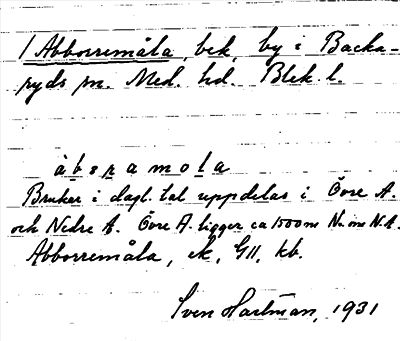 1 Abborremåla, bek, by i Backa-
ryds sn. Med. hd. Blek. l.
àbɛramola
Brukar i dagl. tal uppdelas i Övre A.
och Nedre A. Övre A. ligger ca 1500 m N. om N.A.
Abborremåla, ek, GII, kb.
Sven Hartman, 1931